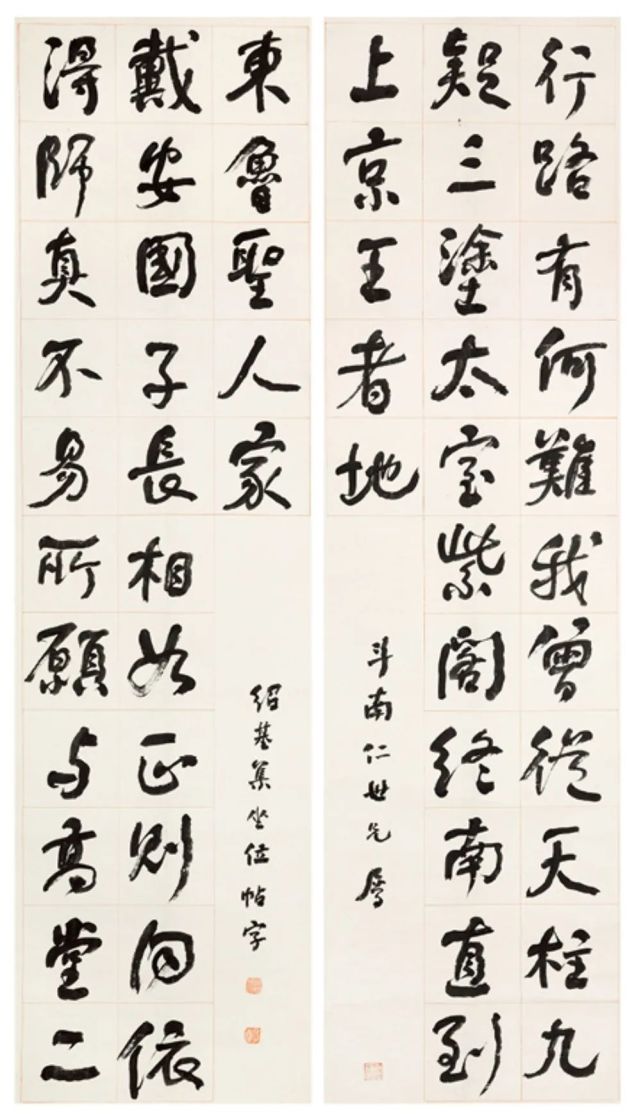 行路有何難我曾從天柱九
疑三塗太室紫閣終南直到
上京王者地
斗南仁世兄屬
得師真不易所願与高堂二
戴安國子長相如正則同依
東魯聖人家
紹基集坐位帖字